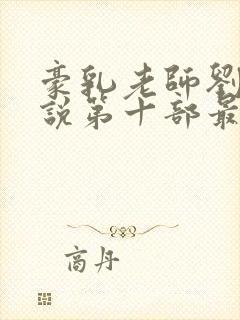 豪乳老師劉
說第十部最
商丹